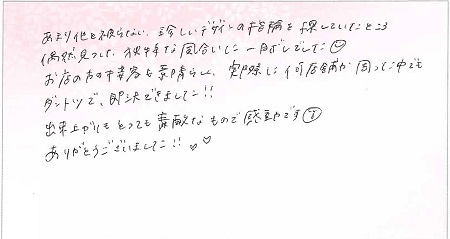 あまり他と被らない、珍しいデザインの指輪を探していたところ
偶然見つけ、絶妙な風合いに一目ぼれでした
お店の方の接客も素晴らしく、実際に何店舗か回った中でも
ダントツで、即決できました!!
出来上がりもとっても素敵なもので感動です
ありがとうございました!! ♡♡